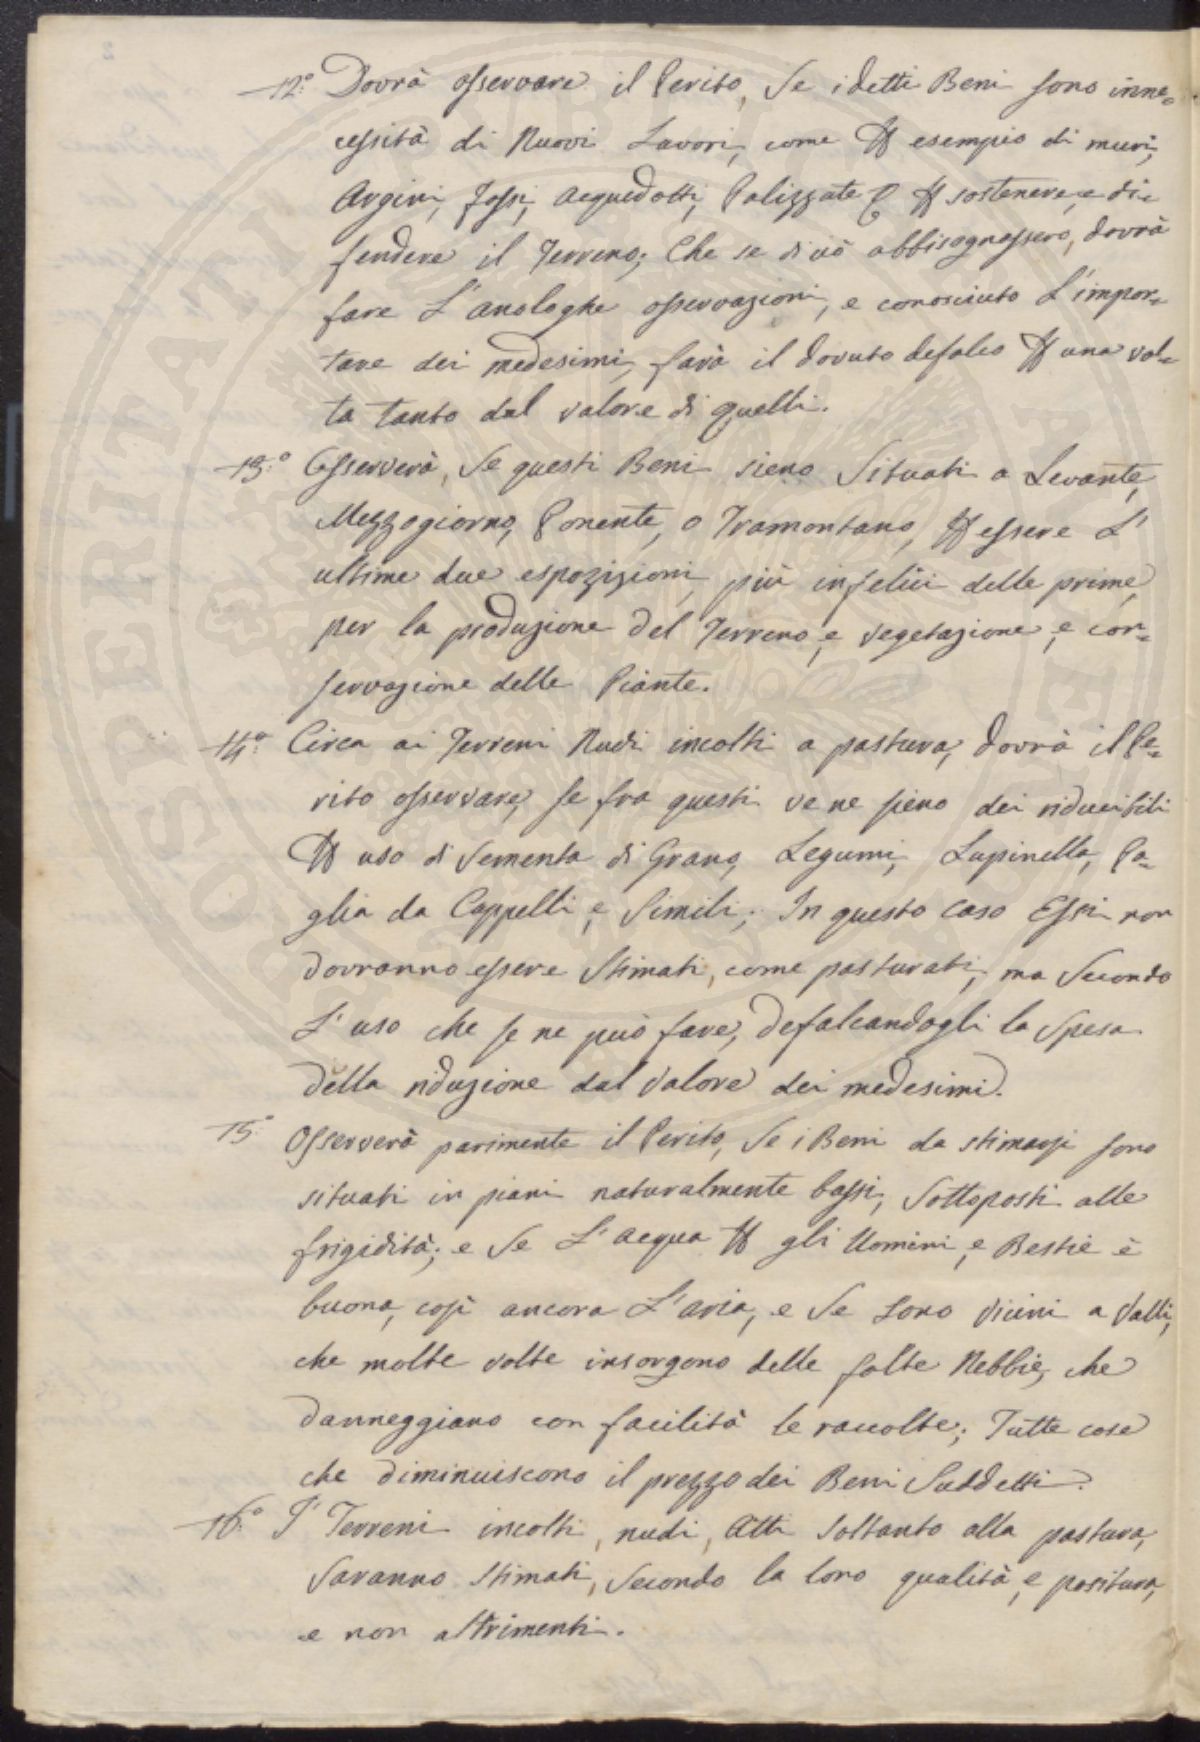 12.° Dovrà osservare il Perito, Se i detti Beni sono inne=
cessità di Nuovi Lavori, come P esempio di muri,
Argini, Fossi, Acquedotti, Palizzate & P sostenere, e di=
fendere il Terreno; Che se di ciò abbisognassero, dovrà
fare L'analoghe osservazioni, e conosciuto L'impor=
tare dei medesimi, farà il dovuto defalco P una vol=
ta tanto dal valore di quelli.
13.° Osserverà, Se questi Beni sieno Situati a Levante,
Mezzogiorno, Ponente, o Tramontano, P essere L'
ultime due espozizioni più infelici delle prime,
per la produzione del Terreno, e vegetazione, e con=
servazione delle Piante.
14.° Circa ai Terreni Nudi incolti a pastura, dovrà il Pe=
rito osservare, se fra questi ve ne sieno dei riducibili
P uso di Sementa di Grano, Legumi, Lupinella, Pa=
glia da Cappelli, e Simili; In questo caso Essi non
dovranno essere Stimati, come pasturati, ma Secondo
L'uso che se ne può fare, defalcandogli la Spesa
della riduzione dal Valore dei medesimi.
15.° Osserverà parimente il Perito, Se i Beni da stimarsi sono
situati in piani naturalmente bassi, Sottoposti alle
frigidità; e Se L'acqua P gli Uomini, e Bestie è
buona, così ancora L'aria, e Se Sono Vicini a Valli,
che molte volte insorgono delle folte Nebbie, che
danneggiano con facilità le raccolte; Tutte cose
che diminuiscono il prezzo dei Beni Suddetti.
16.° I' Terreni incolti, nudi, Atti Soltanto alla pastura,
Saranno Stimati, Secondo la loro qualità, e positura,
e non altrimenti.
PROSPERITATI PUBLICAE AUGENDAE